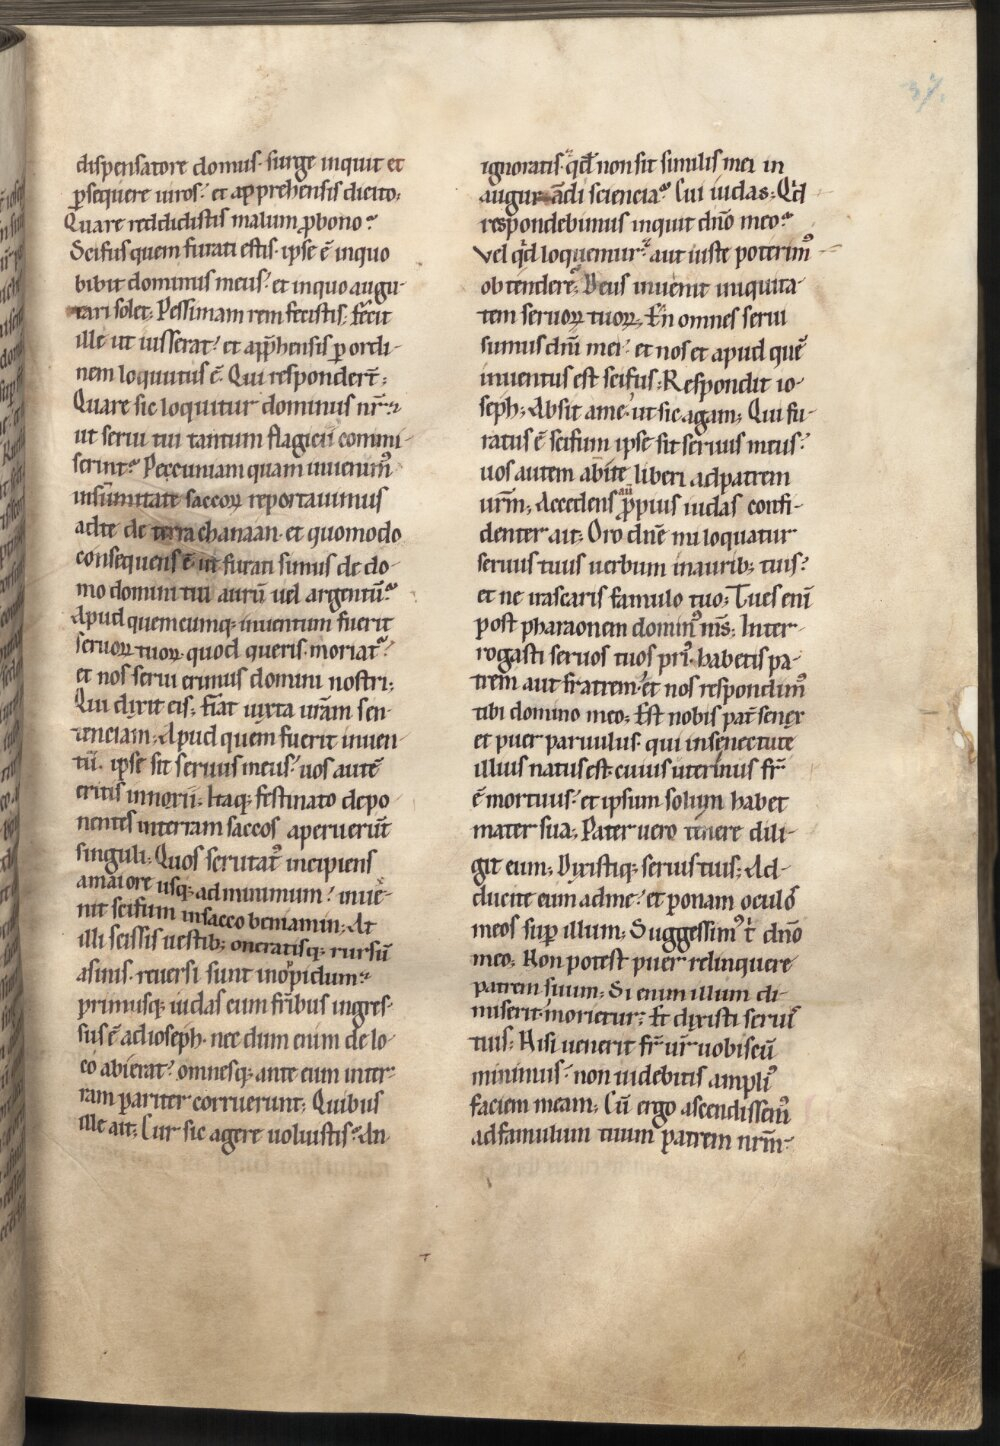 37.
dispensatore domus. surge inquit et
ꝑsequere uiros? et apprehensis dicito;
Quare reddidistis malum ꝓbono?
Scifus quem furati estis. ipse ē inquo
bibit dominus meus? et inquo augu-
rari solet; Pessimam rem fecistis; fecit
ille ut iusserat? et app̄hensis ꝑ ordi-
nem loquutus ē. Qui respondert̄;
Quare sic loquitur dominus nr̄?
ut serui tui tantum flagicii commi-
serint? Peccuniam quam inuenimꝰ
insūmitate saccoꝝ reportauimus
adte de terra chanaan. et quomodo
consequens ē ut furati simus de do-
mo domini tui aurū uel argentū?
Apud quemcumq; inuentum fuerit
seruoꝝ tuoꝝ quod queris. moriatᷣ?
et nos serui erimus domini nostri;
Qui dixit eis; fiat iuxta ur̄am sen-
tenciam; Apud quem fuerit inuen-
tū. ipse sit seruus meus? uos autē
eritis innoxii; Itaq; festinato depo-
nentes interram saccos aperuerūt
singuli; Quos scrutatꝰ incipiens
amaiore usq; ad minimum? inuē-
nit scifum insacco beniamin; At
illi scissis uestib; oneratisq; rursū
asinis. reuersi sunt inopidum;
primusq; iudas cum fr̄ibus ingres-
sus ē adioseph. nec dum enim de lo-
co abierat? omnesq; ante eum inter-
ram pariter corruerunt; Quibus
ille ait; Cur sic agere uoluistis? An
ignoratis. qd̄ non sit similis mei in
augurandi sciencia? Cui iudas; Qd̄
respondebimus inquit dn̄o meo?
Vel qd̄ loquemur? aut iuste poterimꝰ
obtendere? Deus inuenit iniquita-
tem seruoꝝ tuoꝝ; En omnes serui
sumus dn̄i mei? et nos et apud quē
inuentus est scifus; Respondit io-
seph; Absit ame. ut sic agam; Qui fu-
ratus ē scifum ipse sit seruus meus?
uos autem abite liberi adpatrem
urm̄; Accedens aū ꝓpius iudas confi-
denter ait; Oro dn̄e mi loquatur
seruus tuus uerbum inaurib; tuis?
et ne irascaris famulo tuo; Tu es enī
post pharaonem dominꝰ ms̄; Inter-
rogasti seruos tuos priꝰ. habetis pa-
trem aut fratrem? et nos respondimꝰ
tibi domino meo; Est nobis pat̄ senex
et puer paruulus. qui insenectute
illius natus est. cuius uterinus fr̄
ē mortuus? et ipsum solum habet
mater sua; Pater uero tenere dili-
git eum; Dixistiq; seruis tuis; Ad-
ducite eum adme? et ponam oculos
meos suꝑ illum; Suggessimꝰ t̄ dn̄o
meo; Non potest puer relinquere
patrem suum; Si enim illum di-
miserit morietur; Et dixisti seruis
tuis; Nisi uenerit fr̄ ur̄ uobiscū
minimus? non uidebitis ampliꝰ
faciem meam; Cū ergo ascendissemꝰ
adfamulum tuum patrem nrm̄